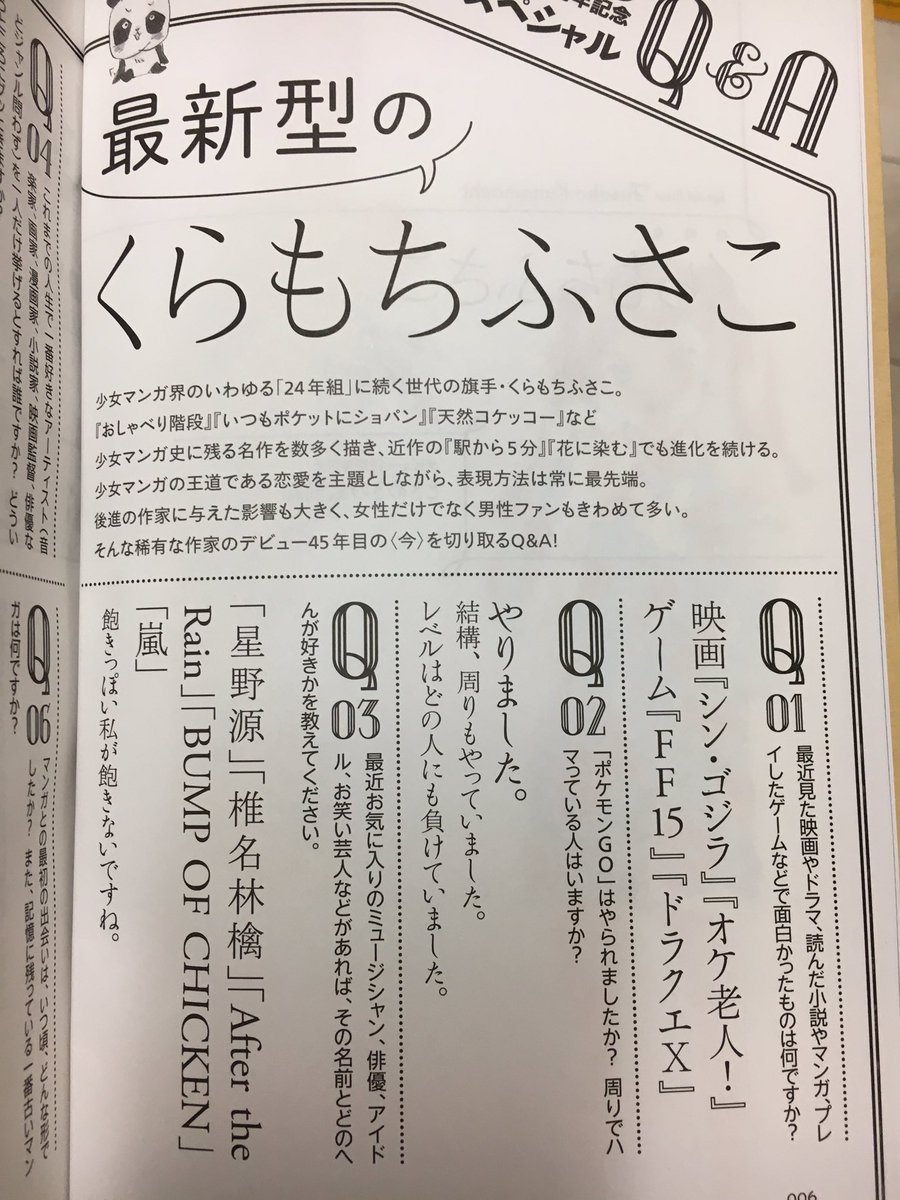 年記念
スペシャル
Q&A
最新型の
くらもちふさこ
少女マンガ界のいわゆる「24年組」に続く世代の旗手・くらもちふさこ。
『おしゃべり階段』『いつもポケットにショパン』『天然コケッコー』など
少女マンガ史に残る名作を数多く描き、近作の『駅から5分』『花に染む』でも進化を続ける。
少女マンガの王道である恋愛を主題としながら、表現方法は常に最先端。
後進の作家に与えた影響も大きく、女性だけでなく男性ファンもきわめて多い。
そんな稀有な作家のデビュー45年目の〈今〉を切り取るQ&A!
Q01
最近見た映画やドラマ、読んだ小説やマンガ、プレ
イしたゲームなどで面白かったものは何ですか?
映画『シン・ゴジラ』『オケ老人!』
ゲーム『FF15』『ドラクエX』
Q02
「ポケモンGO」はやられましたか? 周りでハ
マっている人はいますか?
やりました。
結構、周りもやっていました。
レベルはどの人にも負けていました。
Q03
最近お気に入りのミュージシャン、俳優、アイド
ル、お笑い芸人などがあれば、その名前とどのへ
んが好きかを教えてください。
「星野源」「椎名林檎」「After the
Rain」「BUMP OF CHICKEN」
「嵐」
飽きっぽい私が飽きないですね。
Q04
これまでの人生で一番好きなアーティスト(音
楽家、画家、漫画家、小説家、映画監督、俳優な
どジャンル問わず)を一人だけ挙げるとすれば誰ですか? どうい
Q06
マンガとの最初の出会いは、いつ頃、どんな形で
したか? また、記憶に残っている一番古いマン
ガは何ですか?
006